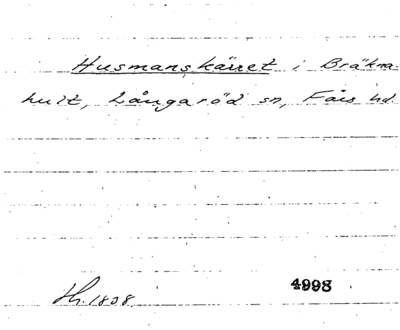 Husmanskärret i Bräkna-
hult, Långaröd sn, Färs hd.
Hh. 1808.
4998